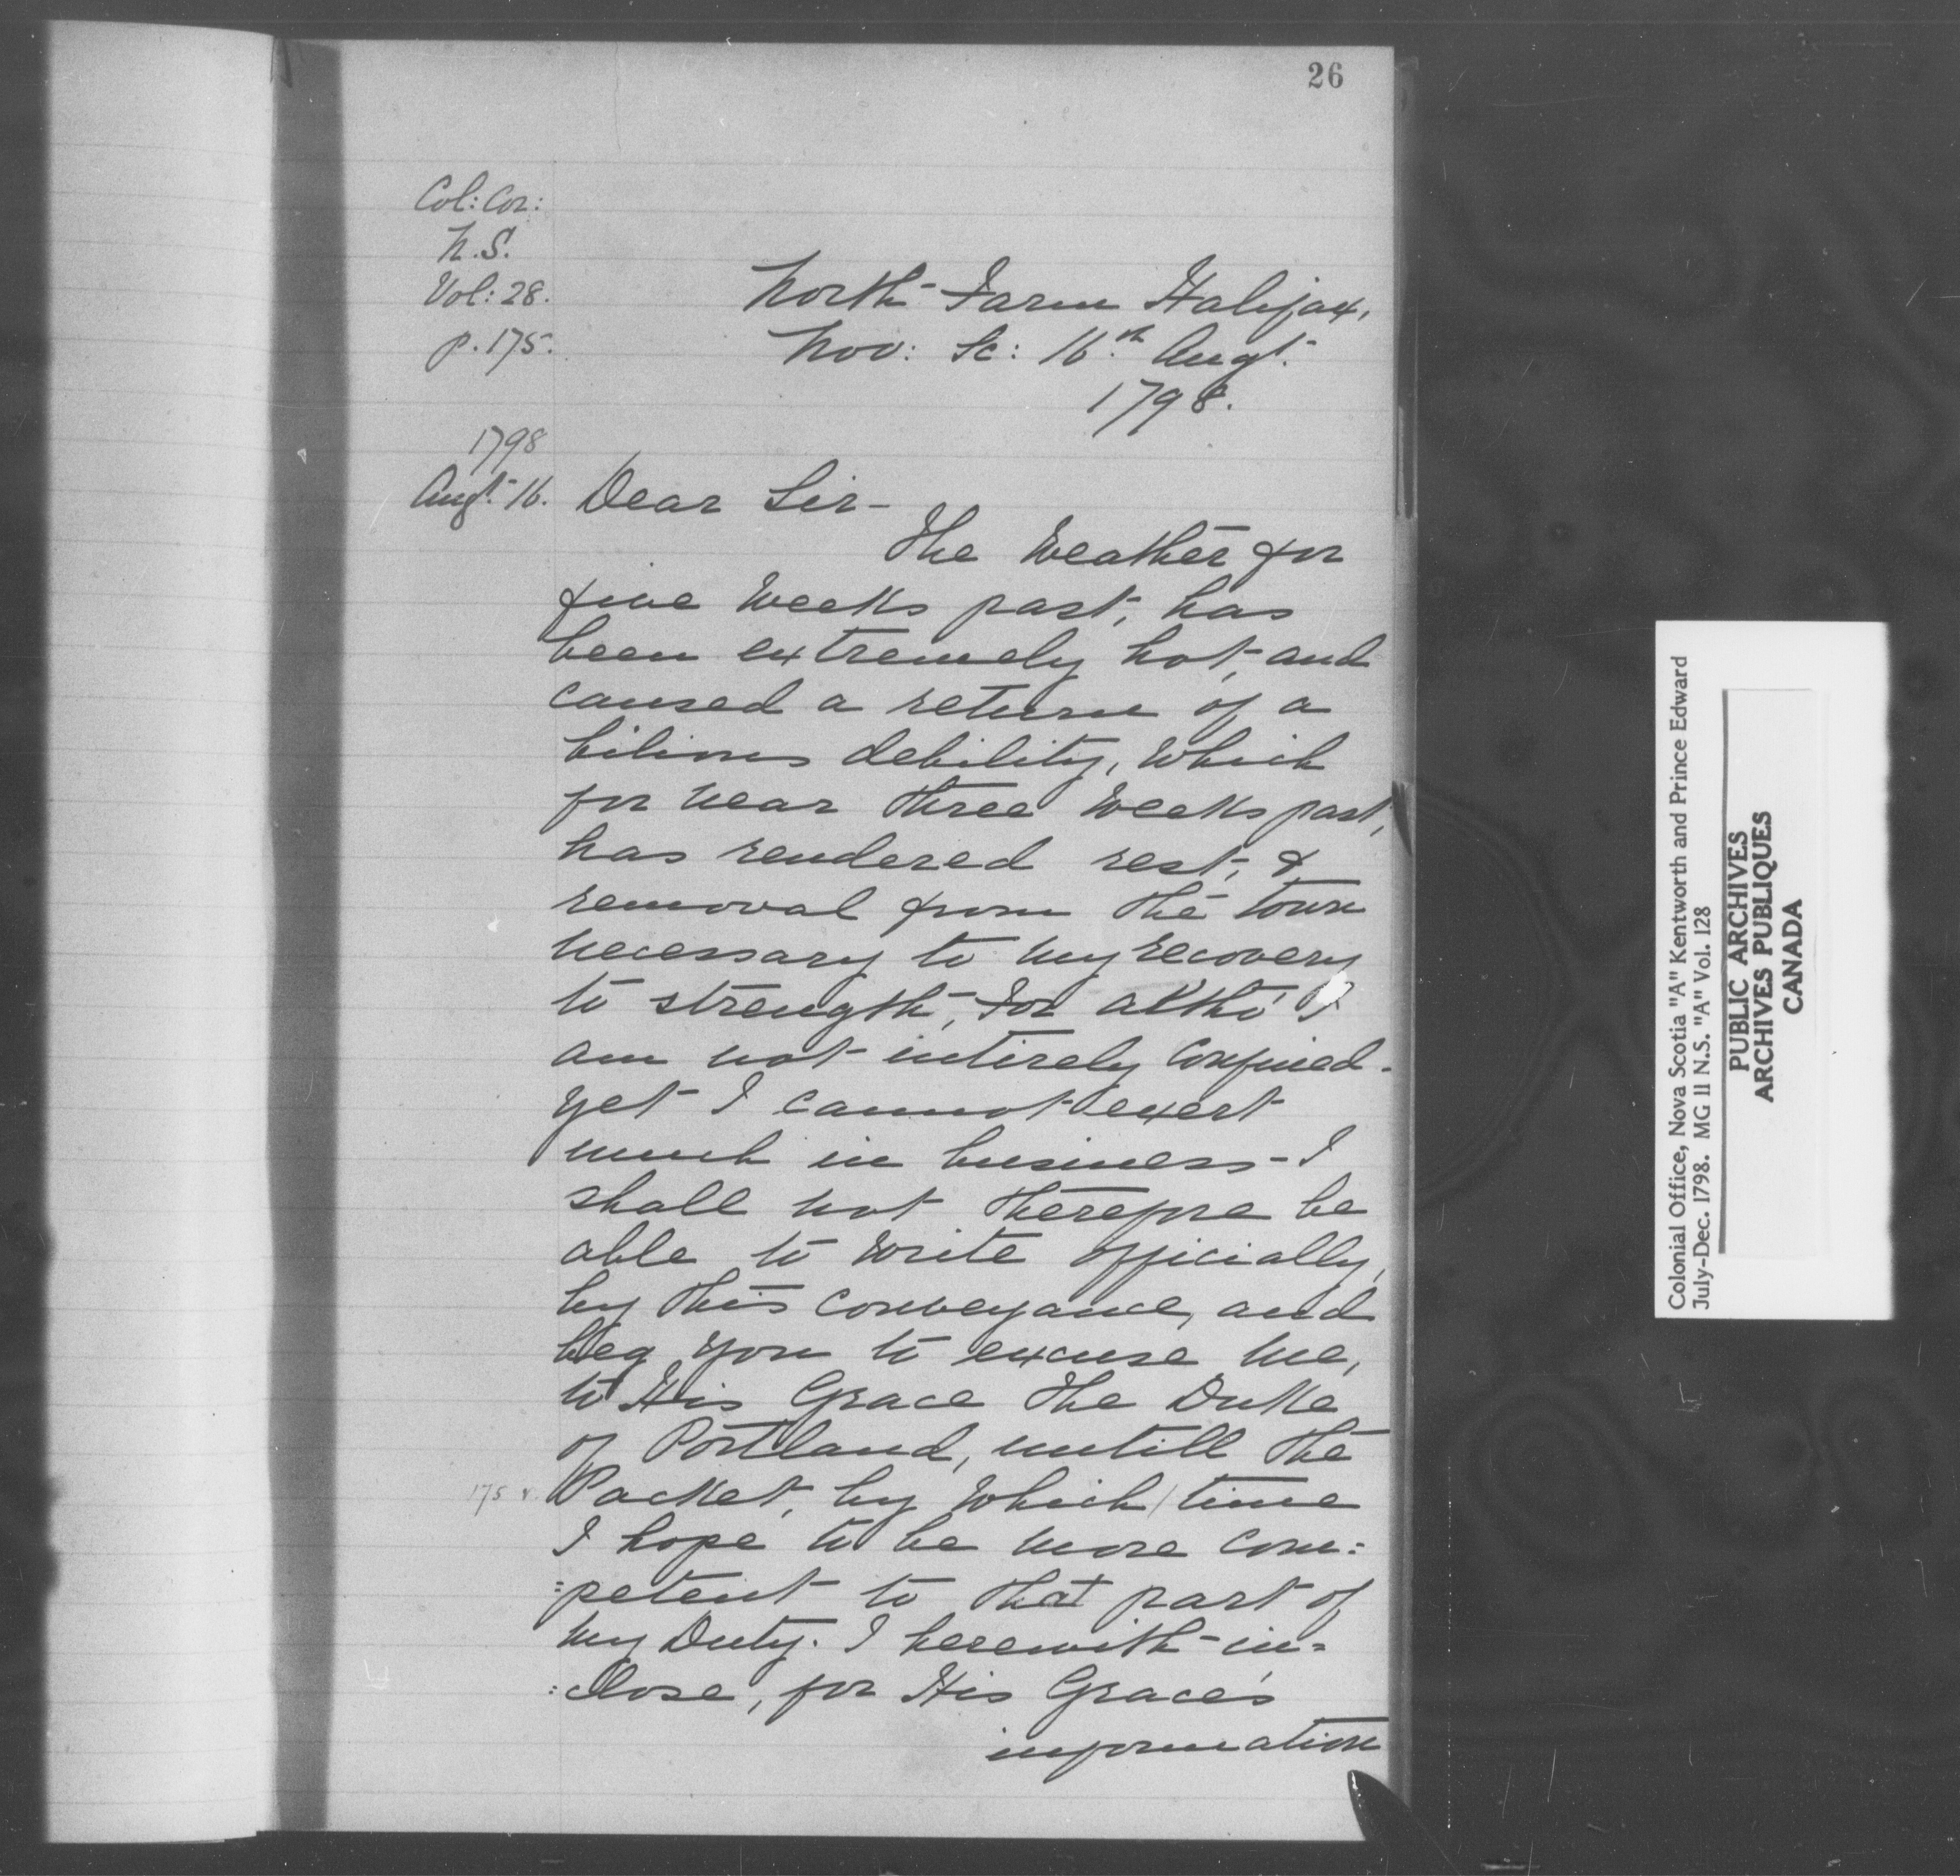 26
Col: Cor:
N.S.
Vol: 28.
p. 175.
North Farm Halifax,
Nov: Sc: 16th Augt.
1798.
1798
Augt. 16.
Dear Sir-
The Weather for
five Weeks past, has
been extremely hot, and
caused a return of a
bilious debility, which
for near three Weeks past,
has rendered rest, &
removal from the town
necessary to my recovery
to strength, for altho' I
am not intirely confined-
yet I cannot exert
much in business - I
shall not therefore be
able to write officially,
by this conveyance, and
beg you to excuse me,
to His Grace the Duke
of Portland, untill the
175 v.
Packet, by which / time
I hope to be more com:
:petent to that part of
my Duty. I herewith in=
:close, for His Grace's
information
Colonial Office, Nova Scotia "A" Kentworth and Prince Edward
July-Dec. 1798. MG 11 N.S. "A" Vol. 128
PUBLIC ARCHIVES
ARCHIVES PUBLIQUES
CANADA